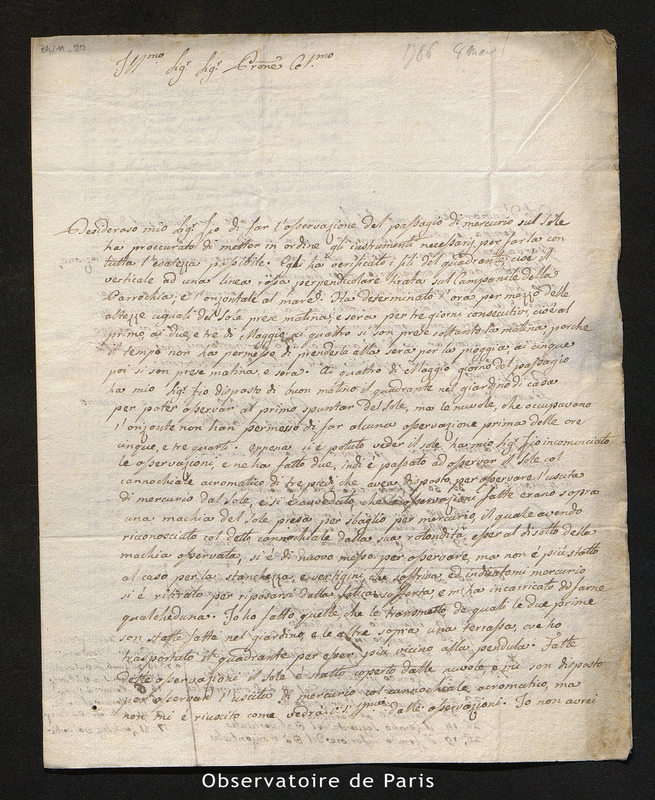 NUM-20
1786 8 Mai
Ill.mo Sig.r Sig.r Prone Col.mo
Desideroso mio Sig.r Zio di far l'osservazione del passagio di mercurio sul sole
ha proccurato di metter in ordine gli instrumenti necessarj per farla con
tutta l'esatezza possibile. Egli ha verificato i fili del quadrante, cioè il
verticale ad una linea rossa perpendicolare tirata sul Campanile della
Parrochia; e l'orizontale al mare. Ha determinato l'ora per mezzo delle
altezze uguali del sole prese matina, e sera per tre giorni consecutivi, cioè al
primo, ai due, e tre di Maggio, ai quattro si son prese soltanto la matina porche
il tempo non ha permesso di prenderle alla sera por la pioggia, ai cinque
poi si son prese matina, e sera. Ai quatro di Maggio giorno del passagio
ha mio Sig.r Zio disposto di buon matino il quadrante nel giardino di casa
per poter osservar al primo spuntar del sole, ma le nuvole, che occupavano
l'orizonte non han permesso di far alcuna osservazione prima delle ore
cinque, e tre quarti. Appena si è potuto veder il sole ha mio Sig.r Zio incominciato
le osservazioni, e ne ha fatto due, indi è passato ad osservar il sole col
cannochiale acromatico di tre piedi, che aveva disposto per osservare l'uscita
di mercurio dal sole, e si è avveduto, che le osservazioni fatte erano sopra
una machia del sole presa per sbaglio per mercurio, il quale avendo
riconosciuto col detto cannochiale dalla sua rotondità, e per al disotto della
machia osservata, si è di nuovo messo per osservare, ma non è più stato
al caso per la stanchezza, e vertigini, che soffriva, ed indicatomi mercurio
si è ritirato per riposarsi dalla fatica sofferta e mi ha incarricato di farne
qualcheduna. Io ho fatto quelle, che le trasmetto de quali le due prime
son state fatte nel giardino, e le altre sopra una terrassa, ove ho
trasportato il quadrante per esser più vicino alla pendula. Fatte
dette osservazioni il sole è stato coperto dalle nuvole, e mi son disposto
per osservar l'uscita di mercurio col cannochiale acromatico, ma
non mi è riuscito come vedrà dalle osservazioni. Io non avrei
Observatoire de Paris